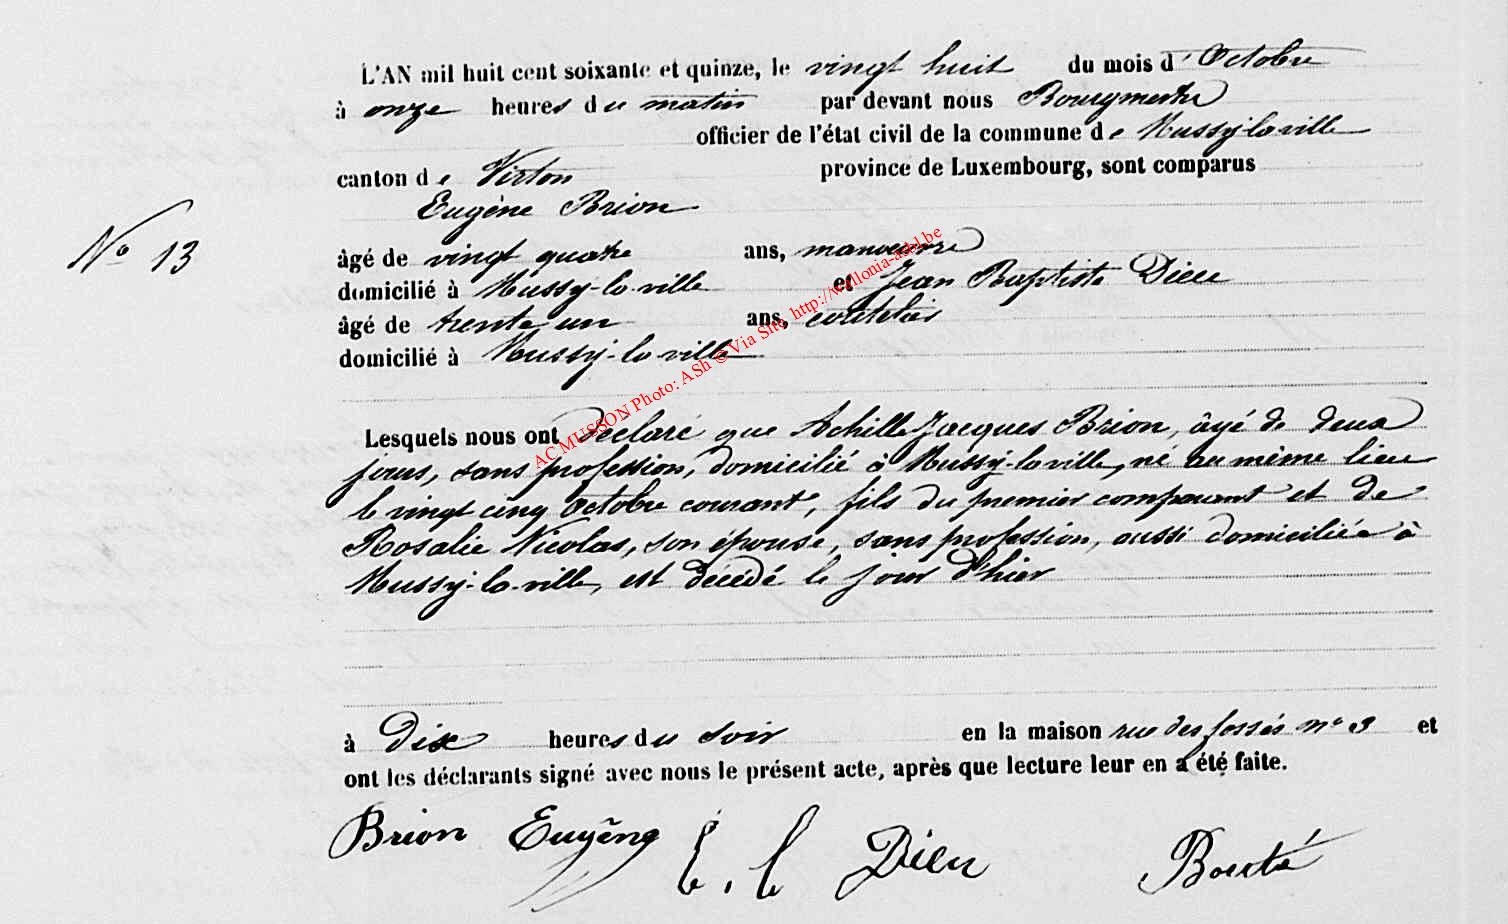 L'AN mil huit cent soixante et quinze, le vingt huit du mois d'Octobre
à onze heures du matin par devant nous Bourgmestre
officier de l'état civil de la commune de Mussy-la ville
canton de Virton province de Luxembourg, sont comparus
Eugène Brion
N° 13
âgé de vingt quatre ans, manoeuvre
domicilié à Mussy-la-ville et Jean Baptiste Dieu
âgé de trente un ans,
domicilié à Mussy-la ville
AC MUSSON Photo: ASh © Via Site http://wallonia-asbl.be
Lesquels nous ont déclaré que Achille Jacques Brion, âgé de deux
jours, sans profession, domicilié à Mussy-la ville, né au même lieu
le vingt cinq Octobre courant, fils du premier comparant et de
Rosalie Nicolas, son épouse, sans profession, aussi domiciliée à
Mussy-la-ville, est décédé le jour d'hier
à Dix heures du soir en la maison rue des fossés n° 3 et
ont les déclarants signé avec nous le présent acte, après que lecture leur en a été faite.
Brion Eugêne Dieu